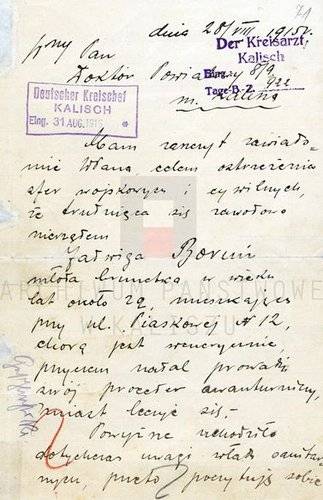 71
dnia 28/VIII 1915 r.
Pan
Der Kreisarzt
Kalisch
Doktór Powiatowy
Eing. 8/9
Tage-B-Z.
m. Kalisza
Deutscher Kreischef
KALISCH
Eing. 31 AUG. 1915
Mam zaszczyt zawiado-
mić Pana celem ostrzeżenia
sfer wojskowych i cywilnych,
że trudniąca się zawodowo
nierządem
Jadwiga
młoda brunetka w wieku
lat około 29, mieszkająca
przy ul. Piaskowej № 12,
chorą jest wenerycznie,
przyczem nadal prowadzi
swój proceder awanturniczy,
zamiast leczyć się.-
Powyższe uchodziło
dotychczas uwagi władz sanitar-
nych, przeto poczytuję sobie
ARCHIWUM PAŃSTWOWE
W KALISZU